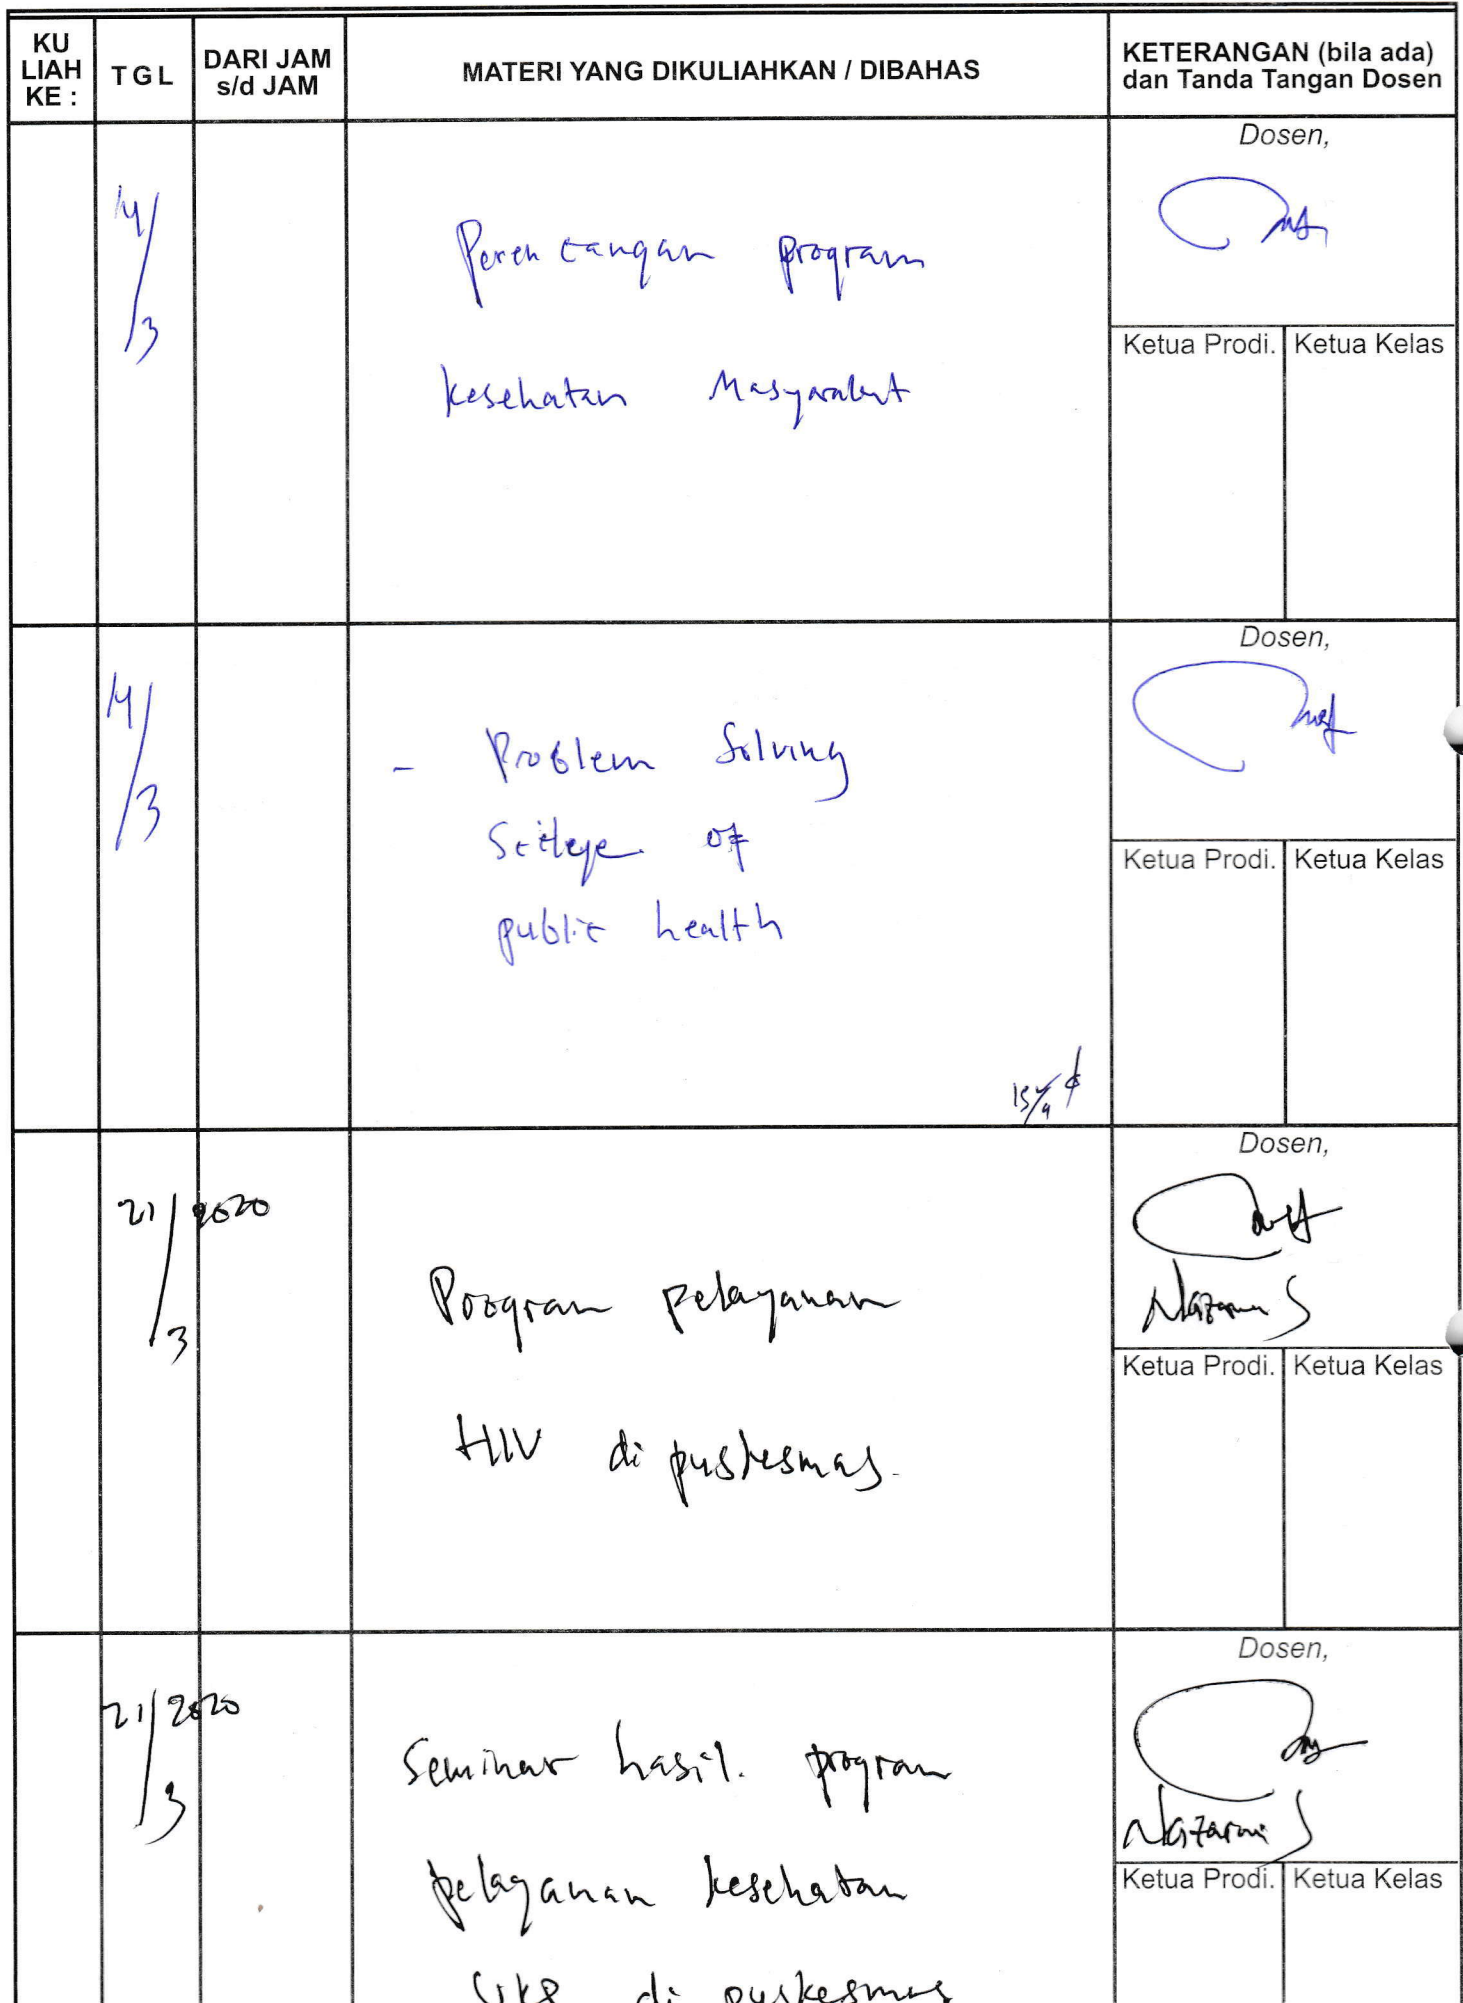 KU LIAH KE :
TGL
DARI JAM s/d JAM
MATERI YANG DIKULIAHKAN / DIBAHAS
KETERANGAN (bila ada) dan Tanda Tangan Dosen
14/3
Perencangan program
kesehatan Masyarakat
Dosen,
Ketua Prodi.
Ketua Kelas
14/3
- Problem Solving
of
public health
Dosen,
Ketua Prodi.
Ketua Kelas
21/3 2020
Program pelayanan
HIV di puskesmas.
Dosen,
Ketua Prodi.
Ketua Kelas
21/3 2020
Seminar hasil. program
pelayanan kesehatan
di puskesmas
Dosen,
Nazarwin S
Ketua Prodi.
Ketua Kelas